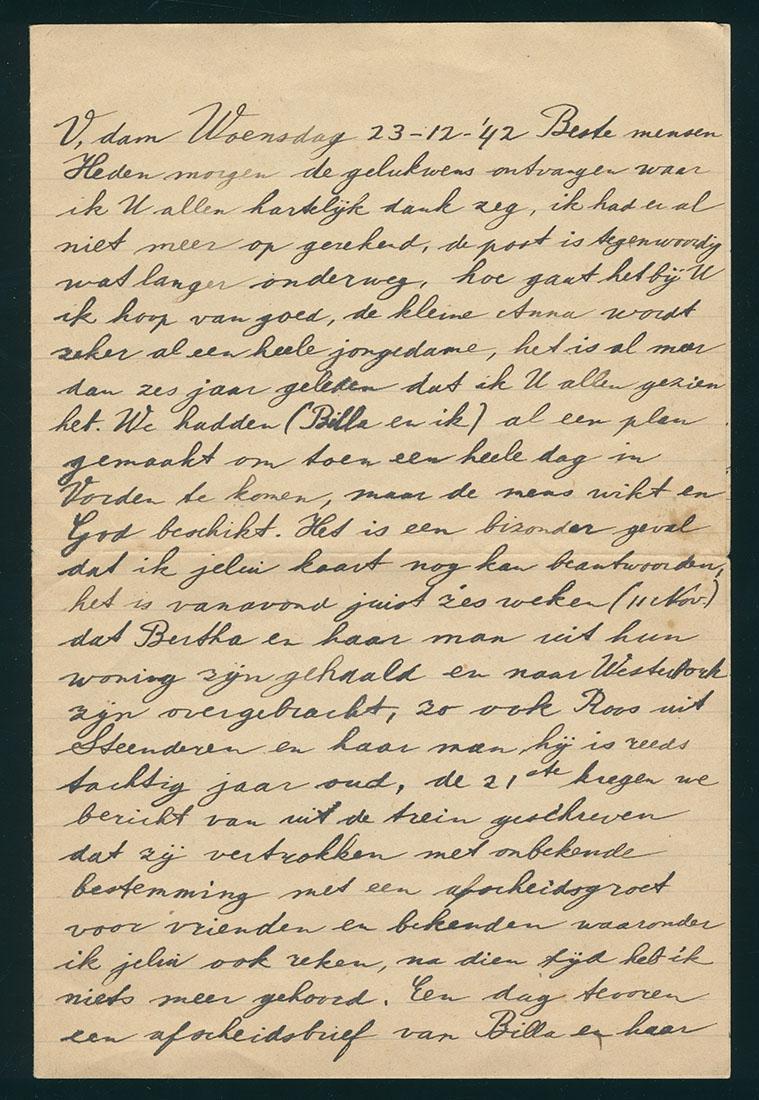 V, dam Woensdag 23-12-'42 Beste mensen
Heden morgen de gelukwens ontvangen waar
ik U allen hartelijk dank zeg, ik had er al
niet meer op gerekend, de post is tegenwoordig
wat langer onderweg, hoe gaat het bij U
ik hoop van goed, de kleine Anna wordt
zeker al een heele jongedame, het is al meer
dan zes jaar geleden dat ik U allen gezien
heb. We hadden (Billa en ik) al een plan
gemaakt om toen een heele dag in
Vorden te komen, maar de mens wikt en
God beschikt. Het is een bizonder geval
dat ik jelui kaart nog kan beantwoorden,
het is vanavond juist zes weken (11 Nov.)
dat Bertha en haar man uit hun
woning zijn gehaald en naar Westerbork
zijn overgebracht, zo ook Roos uit
Steenderen en haar man, hij is reeds
tachtig jaar oud, de 21ste kregen we
bericht van uit de trein geschreven
dat zij vertrokken met onbekende
bestemming met een afscheidsgroet
voor vrienden en bekenden waaronder
ik jelui ook reken, na dien tijd heb ik
niets meer gehoord. Een dag tevoren
een afscheidsbrief van Billa en haar